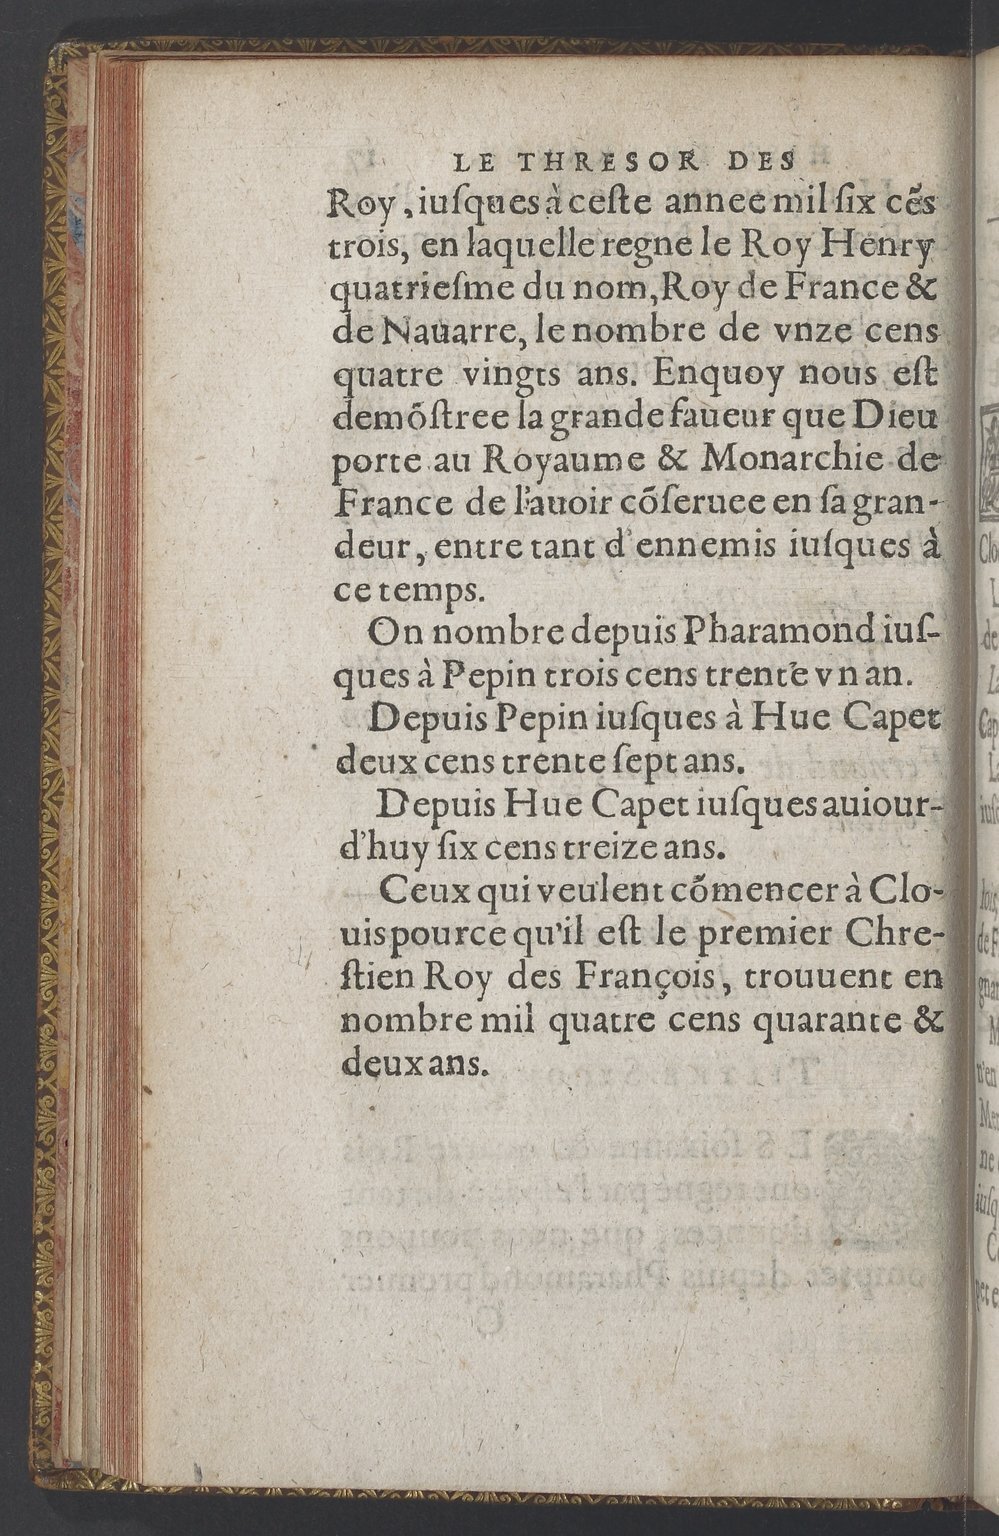 LE THRESOR DES
Roy, iuſques à ceſte annee mil ſix cẽs
trois, en laquelle regne le Roy Henry
quatrieſme du nom, Roy de France &
de Nauarre, le nombre de vnze cens
quatre vingts ans. Enquoy nous eſt
demõſtree la grande faueur que Dieu
porte au Royaume & Monarchie de
France de l'auoir cõſeruee en ſa gran-
deur, entre tant d'ennemis iuſques à
ce temps.
On nombre depuis Pharamond iuſ-
ques à Pepin trois cens trente vn an.
Depuis Pepin iuſques à Hue Capet
deux cens trente ſept ans.
Depuis Hue Capet iuſques auiour-
d'huy ſix cens treize ans.
Ceux qui veulent cõmencer à Clo-
uis pource qu'il eſt le premier Chre-
ſtien Roy des François, trouuent en
nombre mil quatre cens quarante &
deux ans.